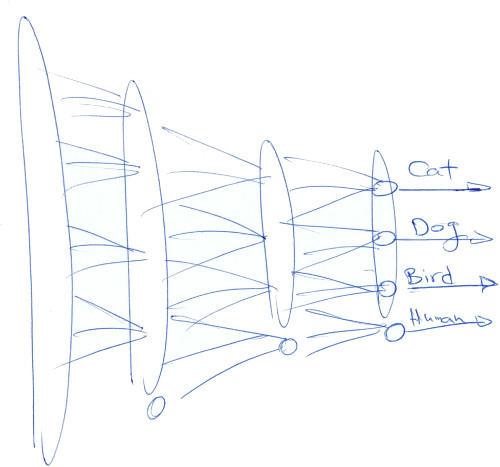 Cat
Dog
Bird
Human